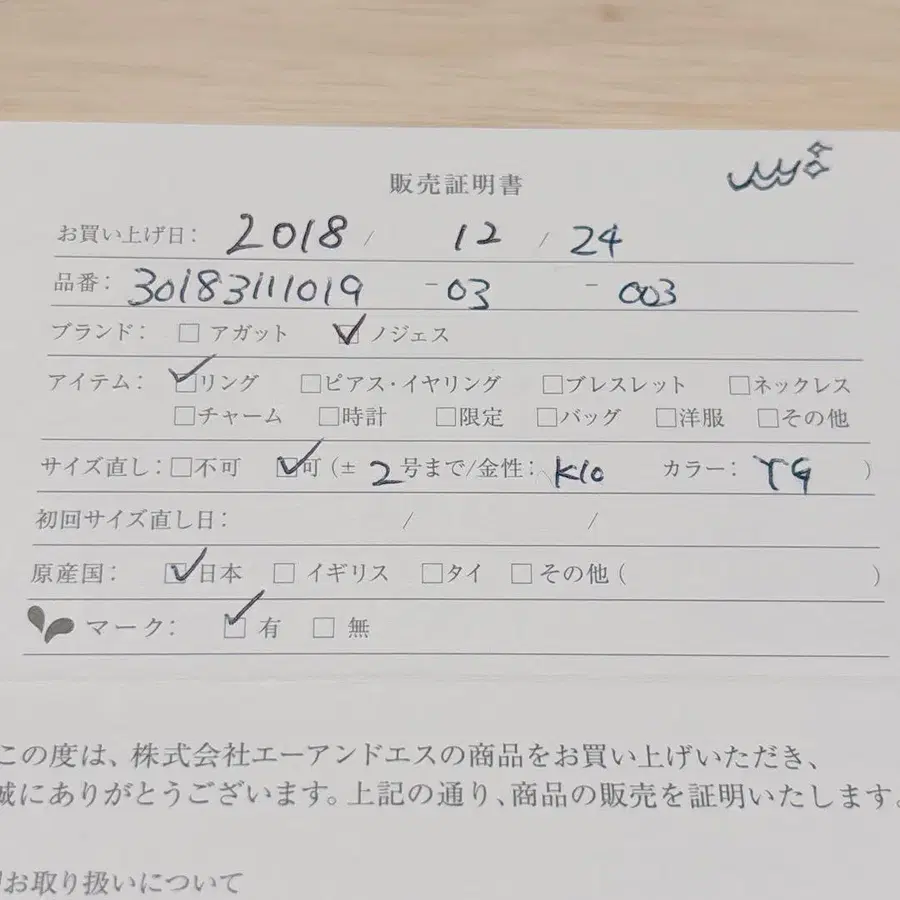 販売証明書
お買い上げ日: 2018 / 12 / 24
品番: 30183111019 -03 - 003
ブランド: □ アガット ☑ ノジェス
アイテム: ☑リング □ピアス・イヤリング □ブレスレット □ネックレス
□チャーム □時計 □限定 □バッグ □洋服 □その他
サイズ直し: □不可 ☑可 (± 2 号まで/金性: K10 カラー: YG )
初回サイズ直し日: / /
原産国: ☑日本 □ イギリス □タイ □その他 ( )
マーク: ☑ 有 □ 無
この度は、株式会社エーアンドエスの商品をお買い上げいただき、
誠にありがとうございます。上記の通り、商品の販売を証明いたします。
お取り扱いについて